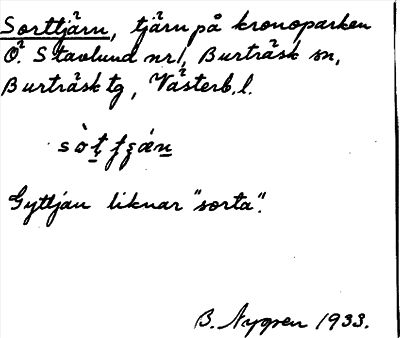 Sorttjärn, tjärn på kronoparken
Ö. Stavlund nr 1, Burträsk sn,
Burträsk tg, Västerb. l.
Gyttjan liknar "sorta".
B. Nygren 1933.